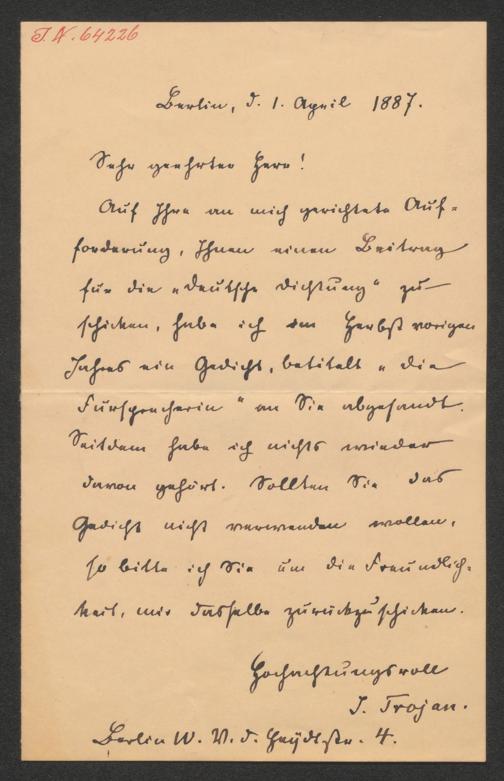 I. N. 64226
Berlin, d. 1. April 1887.
Sehr geehrter Herr!
Auf Ihre an mich gerichtete Auf-
forderung, Ihnen einen Beitrag
für die „Deutsche Dichtung“ zu
schicken, habe ich im Herbst vorigen
Jahres ein Gedicht, betitelt „Die
Fürsprecherin“ an Sie abgesandt.
Seitdem habe ich nichts wieder
davon gehört. Sollten Sie das
Gedicht nicht verwenden wollen,
so bitte ich Sie um die Freundlich-
keit, mir dasselbe zurückzuschicken.
Hochachtungsvoll
J. Trojan.
Berlin W. V. d. Heydtstr. 4.